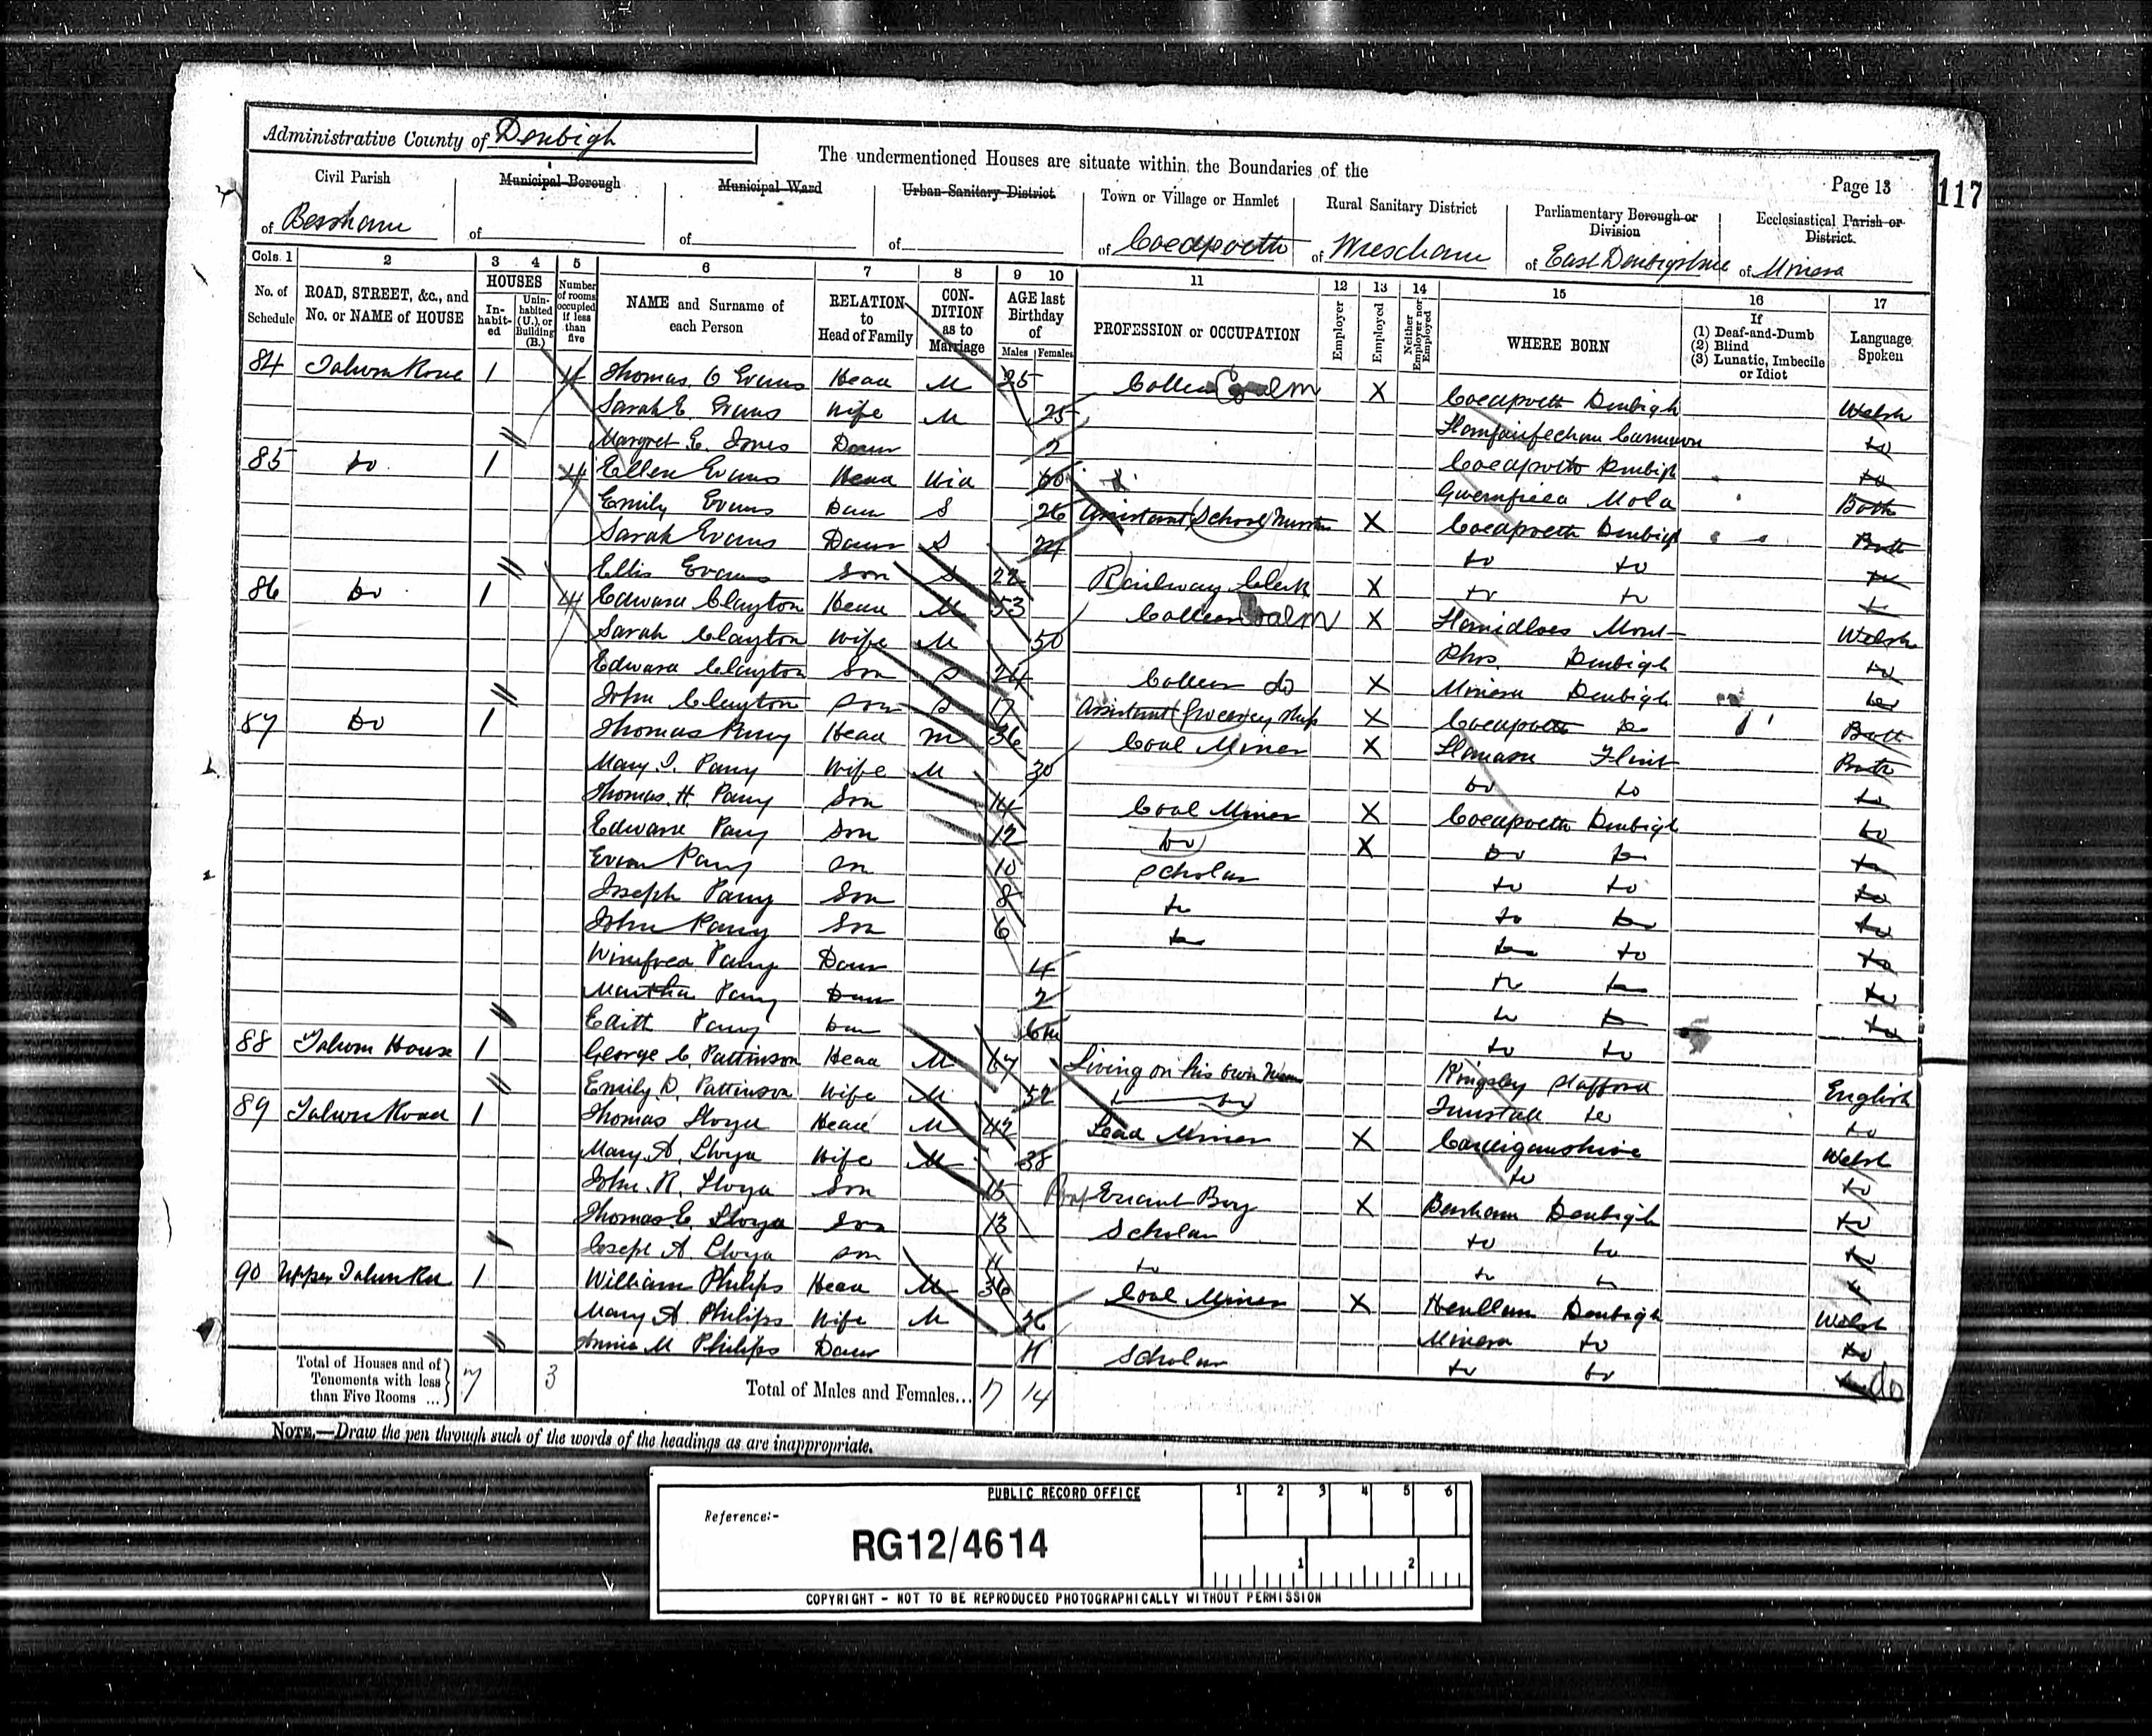 Administrative County of Denbigh
The undermentioned Houses are situate within the Boundaries of the
Page 13
117
Civil Parish
Municipal Borough
Municipal Ward
Urban Sanitary District
Town or Village or Hamlet
Rural Sanitary District
Parliamentary Borough or Division
Ecclesiastical Parish or District
of Bersham
of
of
of
of Coedpoeth
of Wrexham
of East Denbigshire
of Minera
Cols. 1 2 3 4 5 6 7 8 9 10 11 12 13 14 15 16 17
No. of Schedule
ROAD, STREET, &c., and No. or NAME of HOUSE
HOUSES
In-habit-ed
Unin-habited (U.), or Building (B.)
Number of rooms occupied if less than five
NAME and Surname of each Person
RELATION to Head of Family
CON-DITION as to Marriage
AGE last Birthday of
Males Females
PROFESSION or OCCUPATION
Employer
Employed
Neither Employer nor Employed
WHERE BORN
If
(1) Deaf-and-Dumb
(2) Blind
(3) Lunatic, Imbecile or Idiot
Language Spoken
84 1 4 Thomas Evans Head M 25 X Coedpoeth Denbigh Welsh
Sarah E. Evans Wife M 25 Llanfairfechan do
Margret E. Jones Daur 2 Coedpoeth Denbigh do
85 do 1 4 Ellen Evans Head Wid 60 Mold Both
Emily Evans Daur S 26 Assistant School X Coedpoeth Denbigh Both
Sarah Evans Daur S 24 do do
Ellis Evans Son S 22 Railway Clerk X do do
86 do 1 4 Edward Clayton Head M 53 X Llanidloes Mont Welsh
Sarah Clayton Wife M 50 Rhos Denbigh do
Edward Clayton Son S 24 do X Minera Denbigh do
John Clayton Son S 17 Assistant Grocery Shop X Coedpoeth do Both
87 do 1 Thomas Parry Head M 36 Coal Miner X Llanasa Flint Both
Mary J. Parry Wife M 30 do do do
Thomas H. Parry Son 14 Coal Miner X Coedpoeth Denbigh do
Edward Parry Son 12 do X do do do
Evan Parry Son 10 Scholar do do do
Joseph Parry Son 8 do do do do
John Parry Son 6 do do do do
Winifred Parry Daur 4 do do do
Martha Parry Daur 2 do do do
Edith Parry Daur 6m do do
88 House 1 George C. Pattinson Head M 67 Living on his own Means Kingsley Stafford English
Emily D. Pattinson Wife M 52 do Tunstall do do
89 Road 1 Thomas Lloyd Head M 42 Lead Miner X Cardiganshire Welsh
Mary A. Lloyd Wife M 38 do do
John R. Lloyd Son 15 Errand Boy X Bersham Denbigh do
Thomas E. Lloyd Son 13 Scholar do do do
Joseph A. Lloyd Son 11 do do do
90 Upper 1 William Philips Head M 36 Coal Miner X Henllan Denbigh Welsh
Mary A. Philips Wife M Minera do do
Annie M Philips Daur Scholar do do do
Total of Houses and of Tenements with less than Five Rooms ...
7 3
Total of Males and Females...
17 14
NOTE.—Draw the pen through such of the words of the headings as are inappropriate.
PUBLIC RECORD OFFICE
Reference:-
RG12/4614
1 2 3 4 5 6
1 2
COPYRIGHT - NOT TO BE REPRODUCED PHOTOGRAPHICALLY WITHOUT PERMISSION